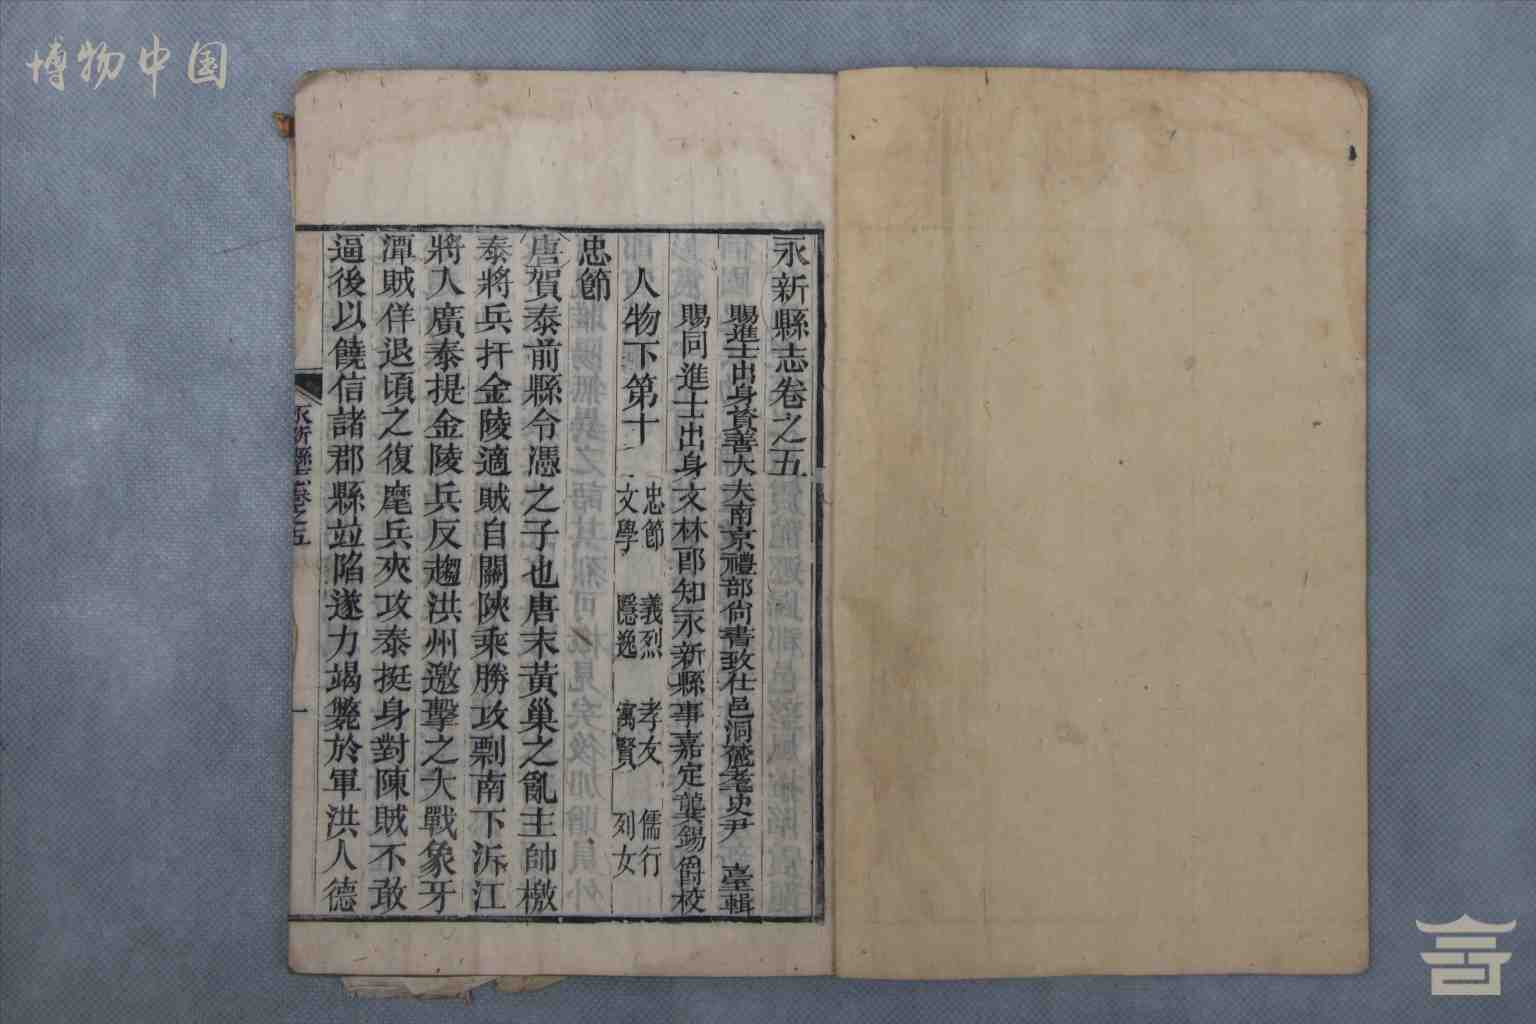 博物中国
永新縣志卷之五
賜進士出身資善大夫南京禮部尚書致仕邑洞麓老史尹 臺輯
賜同進士出身文林郎知永新縣事嘉定龔錫爵校
人物下第十一 忠節 義烈 孝友 儒行
文學 隱逸 寓賢 列女
忠節
唐賀泰前縣令憑之子也唐末黃巢之亂主帥檄
泰將兵扞金陵適賊自關陝乘勝攻剽南下泝江
將入廣泰提金陵兵反趨洪州邀擊之大戰象牙
潭賊佯退頃之復麾兵夾攻泰挺身對陳賊不敢
逼後以饒信諸郡縣竝陷遂力竭斃於軍洪人德
永新縣志卷之五
一